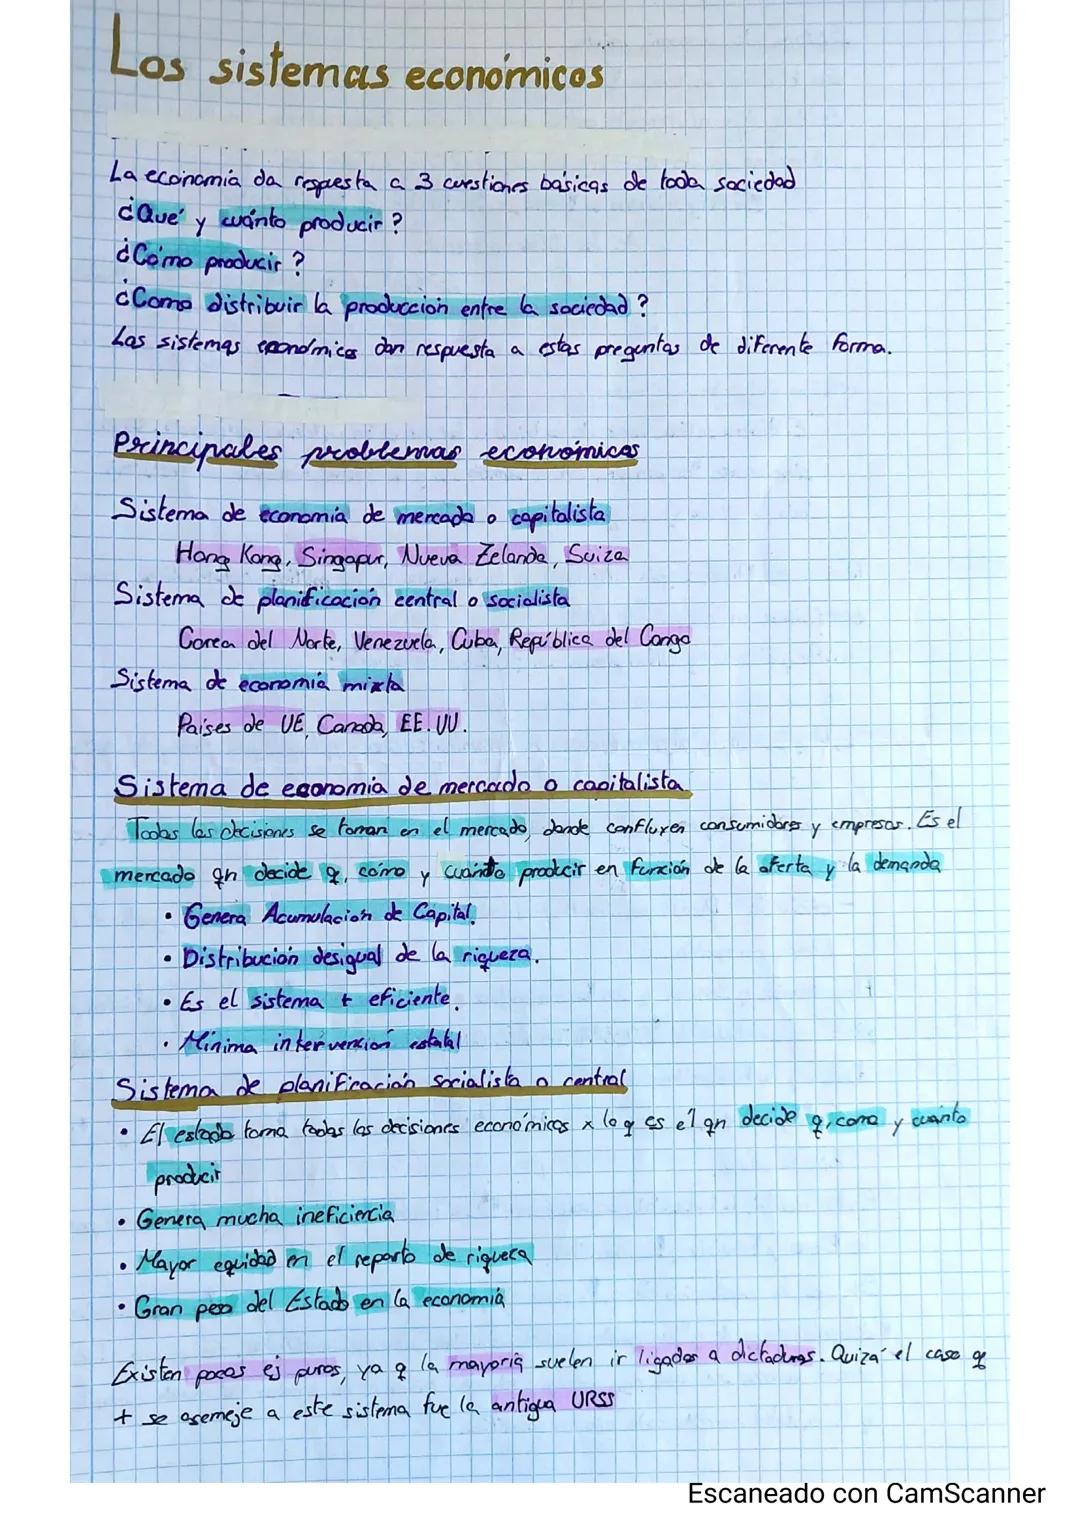 Los sistemas económicos
La economía da respuesta a 3 cuestiones básicas de toda sociedad
¿Qué y cuánto producir?
¿Cómo producir?
¿Como distribuir la producción entre la sociedad?
Los sistemas económicos dan respuesta a estas preguntas de diferente forma.
Principales problemas económicos
Sistema de economía de mercado o capitalista
Hong Kong, Singapur, Nueva Zelanda, Suiza
Sistema de planificación central o socialista
Corea del Norte, Venezuela, Cuba, República del Congo
Sistema de economía mixta
Paises de UE, Canada, EE.UU.
Sistema de economía de mercado o capitalista
Todas las decisiones se toman en el mercado, donde confluyen consumidores y empresas. Es el
mercado qn decide q, cómo y cuánto producir en función de la oferta y la demanda
• Genera Acumulación de Capital.
• Distribución desigual de la riqueza.
• Es el sistema + eficiente.
• Mínima intervención estatal
Sistema de planificación socialista o central
• El estado toma todas las decisiones económicas x lo q es él qn decide q, como y cuánto
producir
• Genera mucha ineficiencia
• Mayor equidad en el reparto de riqueza
• Gran peso del Estado en la economía
Existen pocos ej puros, ya q la mayoría suelen ir ligados a dictaduras. Quizá el caso q
+ se asemeje a este sistema fue la antigua URSS
Escaneado con CamScanner